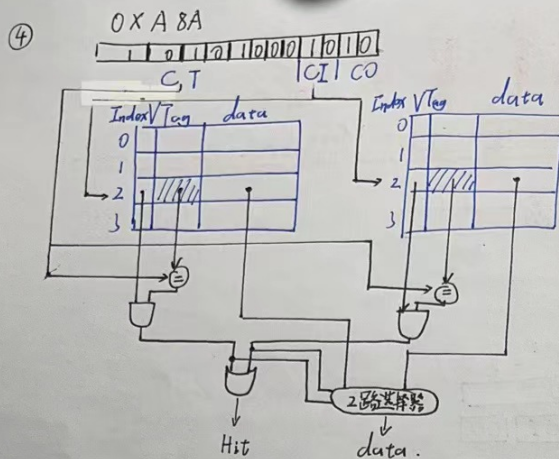 ④
0XA8A
1 0 1 0 1 0 0 0 1 0 1 0
C,T CI CO
Index V Tag data
0
1
2
3
Index V Tag data
0
1
2
3
=
=
2路选择器
Hit
data.